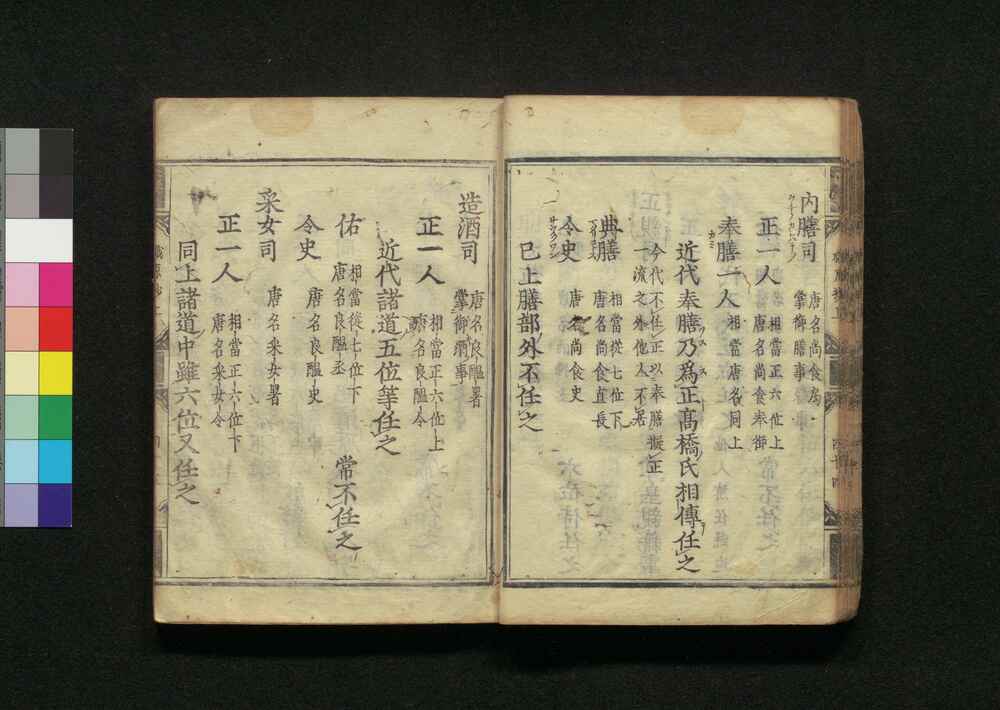 内膳司
唐名尚食局
掌御膳事
正一人
相當正六位上
唐名尚食奉御
奉膳一人
相當唐名同上
近代奉膳乃爲正髙橋氏相傳任之
今代不任正以奉膳擬正
一流之外他人不居
典膳
相當從七位下
唐名尚食直長
令史
唐名尚食史
已上膳部外不任之
造酒司
唐名良醞署
掌御酒事
正一人
相當正六位上
唐名良醞令
近代諸道五位等任之
佑
相當從七位下
唐名良醞丞
常不任之
令史
唐名良醞史
采女司
唐名采女署
正一人
相當正六位下
唐名采女令
同上諸道中雖六位又任之